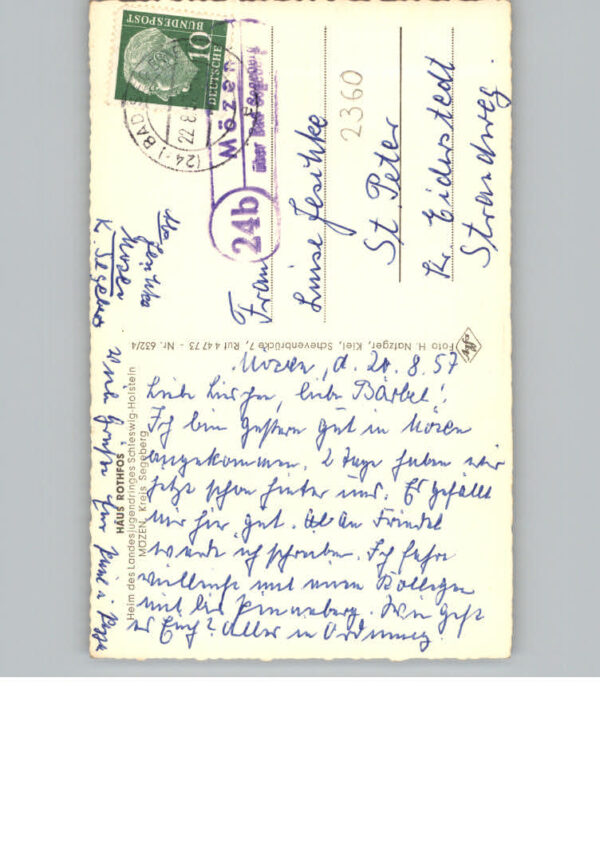 Mözen, d. 20.8.57
Liebe Luischen, liebe Bärbel!
Ich bin gestern gut in Mözen
angekommen. 2 Tage haben wir
jetzt schon hinter uns. Es gefällt
mir hier gut. An Friedel
werde ich schreiben. Ich fahre
vielleicht mit einem Kollegen
mit bis Pinneberg. Wie geht
es Euch? Alles in Ordnung?
Viele Grüße
Mözen
K. Segeberg
HAUS ROTHFOS
Heim des Landesjugendringes Schleswig-Holstein
MÖZEN, Kreis Segeberg
Foto H. Natzger, Kiel, Schevenbrücke 7, Ruf 4 4773 - Nr. 632/4
Agfa
DEUTSCHE
BUNDESPOST
10
(24) BAD
22.8
24b
Mözen
über Bad Segeberg
Frau
Luise Jeschke
2360
St Peter
Kr. Eiderstedt
Strandweg.